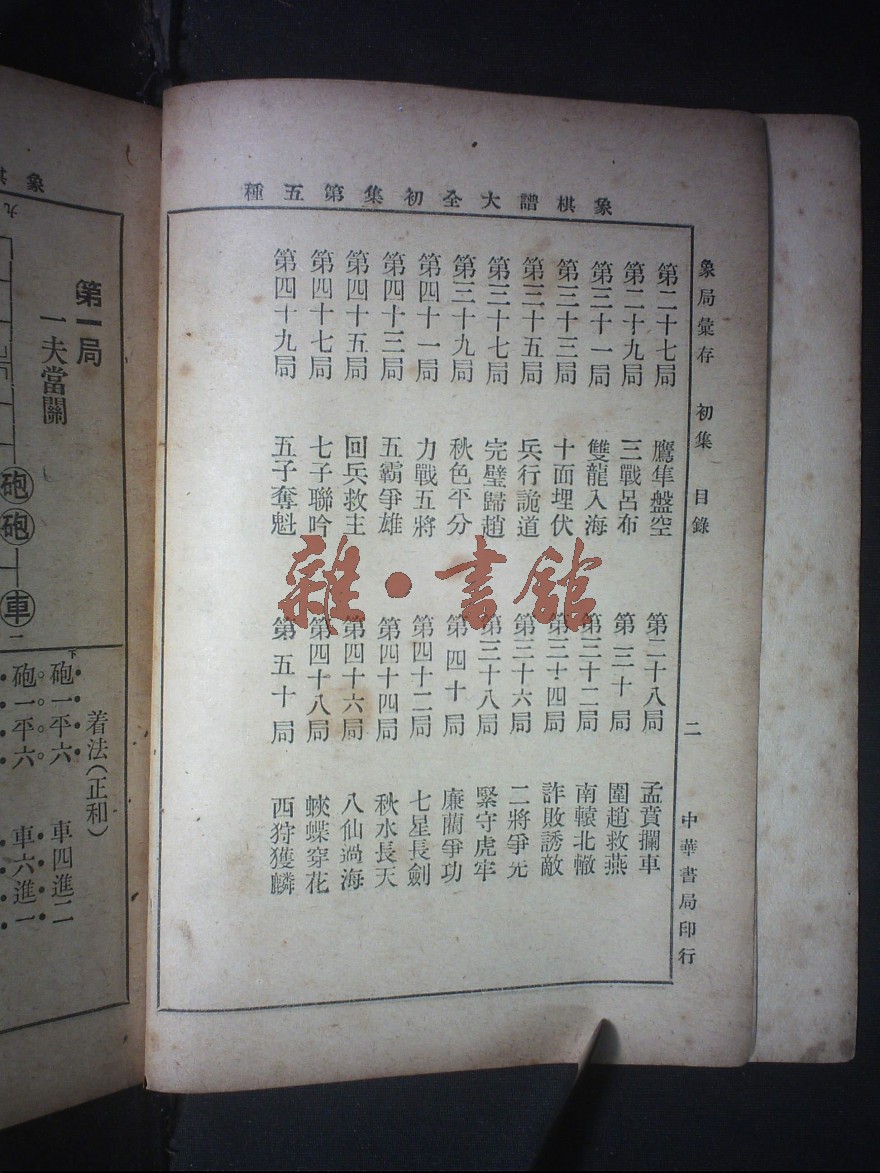 象棋譜大全初集第五種
象局彙存 初集 目錄 二 中華書局印行
第二十七局 鷹隼盤空 第二十八局 孟賁攔車
第二十九局 三戰呂布 第三十局 圍趙救燕
第三十一局 雙龍入海 第三十二局 南轅北轍
第三十三局 十面埋伏 第三十四局 詐敗誘敵
第三十五局 兵行詭道 第三十六局 二將爭先
第三十七局 完璧歸趙 第三十八局 緊守虎牢
第三十九局 秋色平分 第四十局 廉藺爭功
第四十一局 力戰五將 第四十二局 七星長劍
第四十三局 五霸爭雄 第四十四局 秋水長天
第四十五局 回兵救主 第四十六局 八仙過海
第四十七局 七子聯吟 第四十八局 蛺蝶穿花
第四十九局 五子奪魁 第五十局 西狩獲麟
雜·書館
象
第一局
一夫當關
九
砲
砲
車
一
着法(正和)
下
砲一平六 車四進二
砲一平六 車六進一